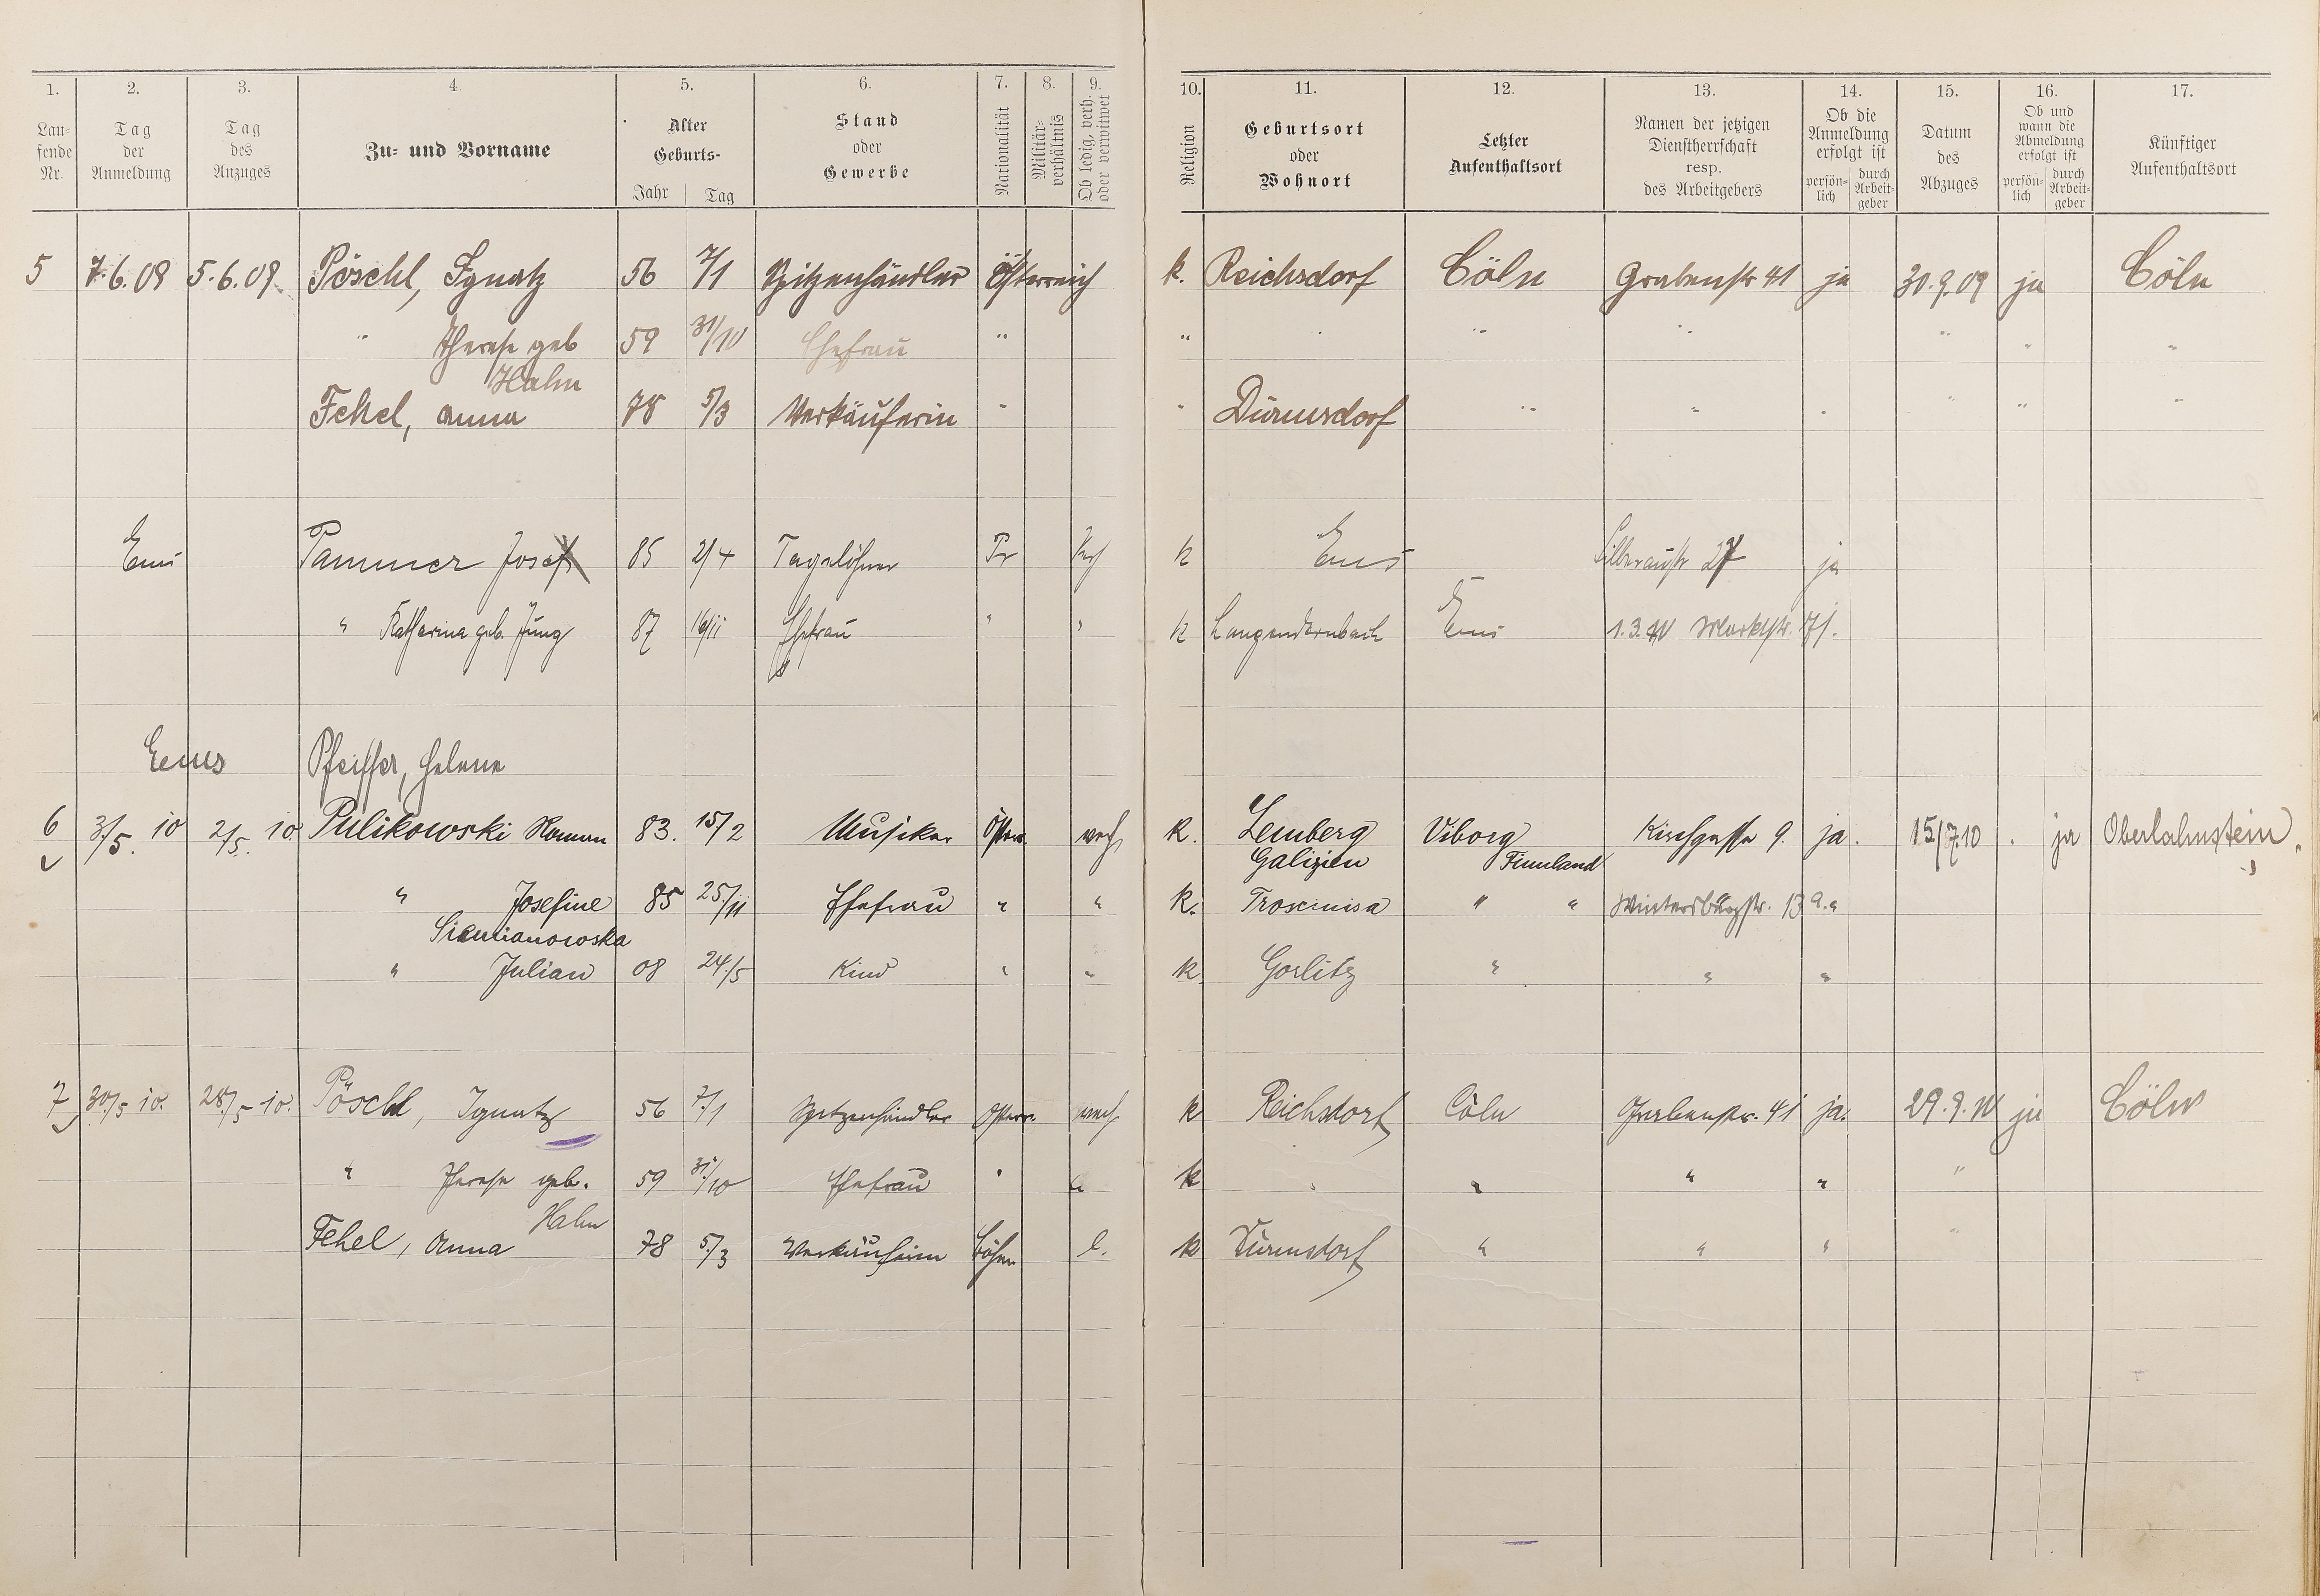 1. 2. 3. 4. 5. 6. 7. 8. 9. 10. 11. 12. 13. 14. 15. 16. 17.
Lau-fende Nr.
Tag der Anmeldung
Tag des Anzuges
Zu- und Vorname
Alter Geburts- Jahr Tag
Stand oder Gewerbe
Nationalität
Militär-verhältnis
Ob ledig, verh. oder verwitwet
Religion
Geburtsort oder Wohnort
Letzter Aufenthaltsort
Namen der jetzigen Dienstherrschaft resp. des Arbeitgebers
Ob die Anmeldung erfolgt ist persön-lich durch Arbeit-geber
Datum des Abzuges
Ob und wann die Abmeldung erfolgt ist persön-lich durch Arbeit-geber
Künftiger Aufenthaltsort
5 7.6.09 5.6.09. Pöschl, Ignatz 56 7/1 Spitzenhändler Österreich k. Reichsdorf Cöln Grabenstr 41 ja 30.9.09 ja Cöln
" Therese geb 59 31/10 Ehefrau " " " " " " " "
Hahn
Fehel, Anna 78 5/3 Verkäuferin " " Dürmsdorf " " " " " "
Ems Pammer Josef 85 2/4 Tagelöhner Pr k Ems Silberaustr 27 ja
" Katharina geb. Jung 87 16/11 Ehefrau " " k Langendernbach Ems 1.3.10 Marktstr.
Ems Pfeiffer, Helene
6 3/5. 10 2/5. 10. Pulikowski Roman 83. 15/2 Musiker Österr. verh k. Lemberg Viborg Kirchgasse 9. ja. 15/7.10 ja Oberlahnstein
Galizien Finnland
" Josefine 85 25./11 Ehefrau " " k. " " Wintersbergstr. 13 a. "
Siemianowska
" Julian 08 24./5 Kind " " k. Gorlitz " " "
7 30/5 10. 28/5 10. Pöschl, Ignatz 56 7/1 Spitzenhändler Österr. verh k Reichsdorf Cöln Grabenstr. 41 ja. 29.9.10 ja Cöln
" Therese geb. 59 31/10 Ehefrau " " k " " " " "
Hahn
Fehel, Anna 78 5./3 Verkäuferin Böhm l. k Dürmsdorf " " " "